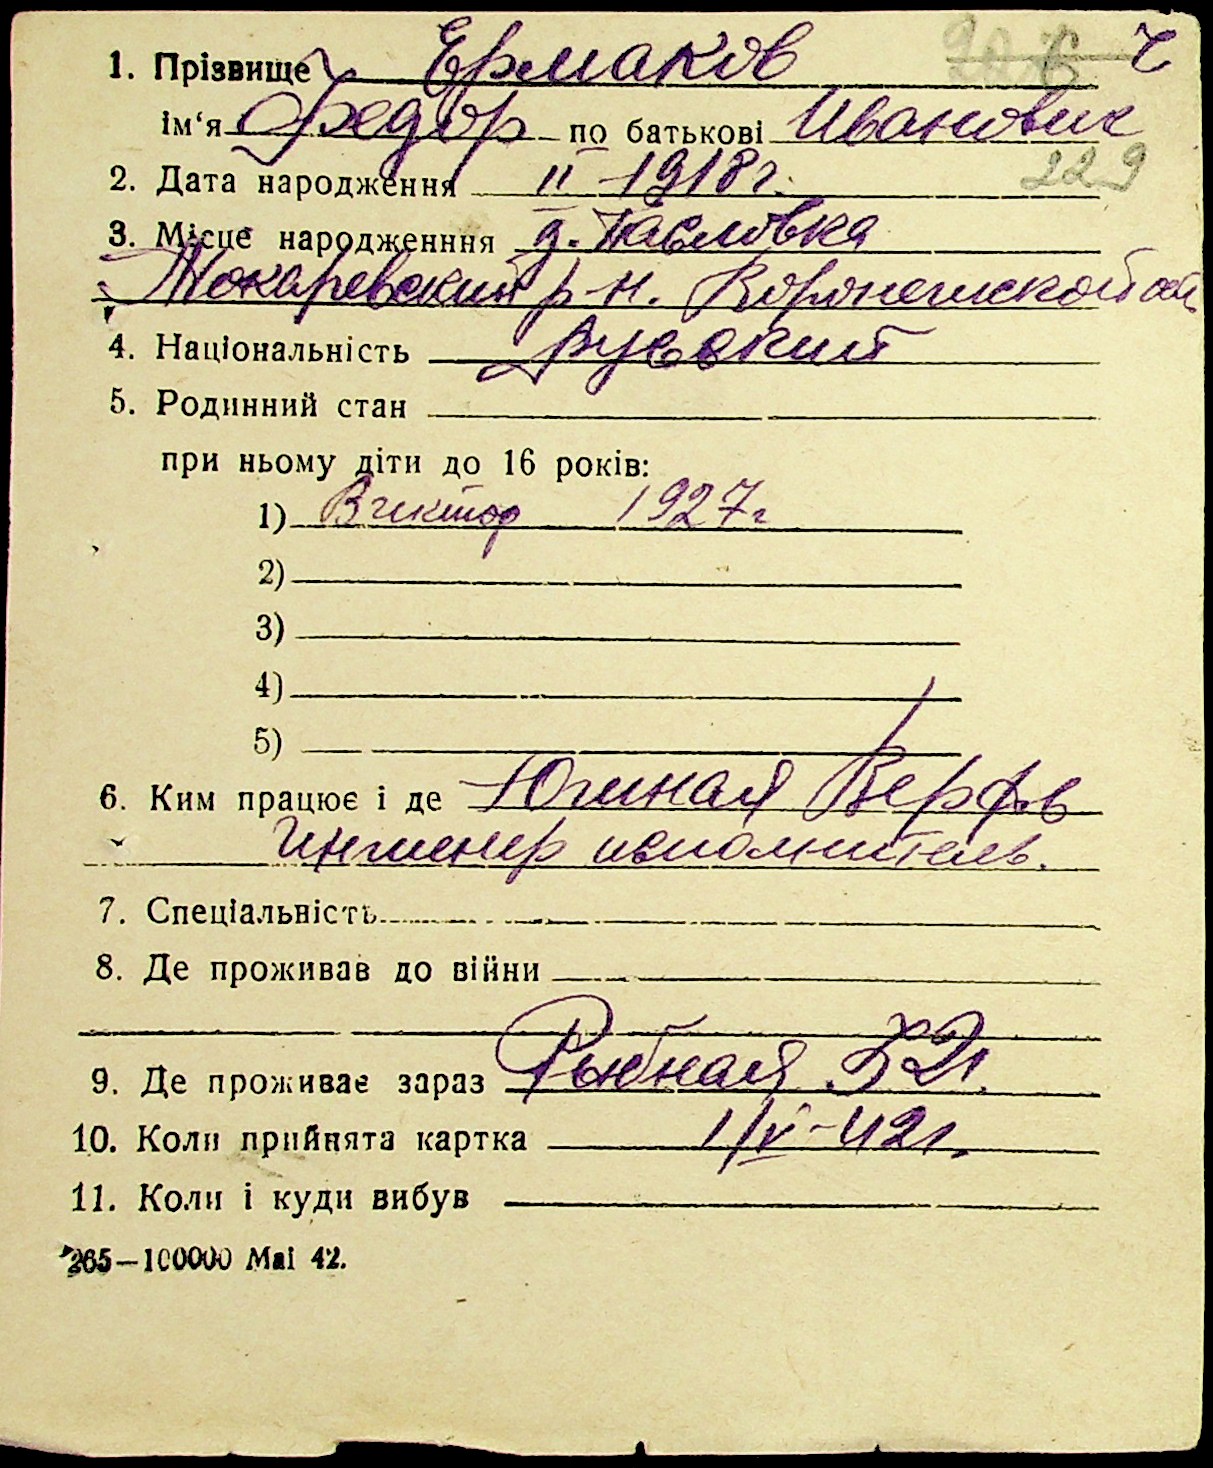 1. Прізвище Ермаков Ч
ім‘я Федор по батькові Иванович
229
2. Дата народження II 1918 г.
3. Місце народженння д. Павловка
Токаревский р-н. Воронежской обл.
4. Національність Русский
5. Родинний стан
при ньому діти до 16 років:
1) Виктор 1927 г
2)
3)
4)
5)
6. Ким працює і де Южная Верфь
Инженер исполнитель.
7. Спеціальність
8. Де проживав до війни
9. Де проживає зараз Рыбная 32
10. Коли прийнята картка 1/V-42 г.
11. Коли і куди вибув
265—100000 Маі 42.